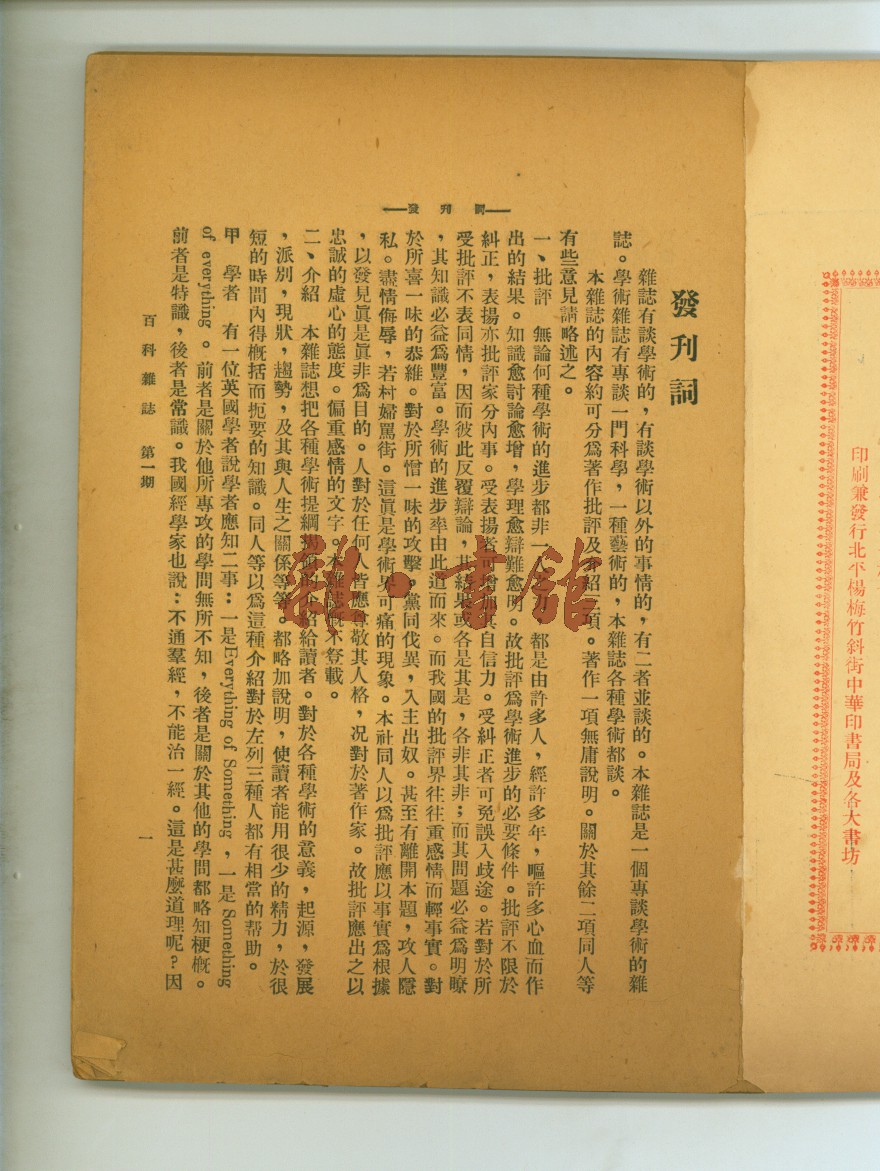 印刷兼發行北平楊梅竹斜街中華印書局及各大書坊
發刊詞
發刊詞
雜誌有談學術的，有談學術以外的事情的，有二者並談的。本雜誌是一個專談學術的雜
誌。學術雜誌有專談一門科學，一種藝術的，本雜誌各種學術都談。
本雜誌的內容約可分為著作批評及介紹三項。著作一項無庸說明。關於其餘二項同人等
有些意見請略述之。
一、批評　無論何種學術的進步都非一人之力，都是由許多人，經許多年，嘔許多心血而作
出的結果。知識愈討論愈增，學理愈辯難愈明。故批評爲學術進步的必要條件。批評不限於
糾正，表揚亦批評家分內事。受表揚者可增加其自信力。受糾正者可免誤入歧途。若對於所
受批評不表同情，因而彼此反覆辯論，其結果或各是其是，各非其非；而其問題必益爲明瞭
，其知識必益爲豐富。學術的進步率由此道而來。而我國的批評界往往重感情而輕事實。對
於所喜一味的恭維。對於所憎一味的攻擊。黨同伐異，入主出奴。甚至有離開本題，攻人隱
私。盡情侮辱，若村婦罵街。這眞是學術界可痛的現象。本社同人以爲批評應以事實爲根據
，以發見眞是眞非爲目的。人對於任何人皆應尊敬其人格，况對於著作家。故批評應出之以
忠誠的虛心的態度。偏重感情的文字。本雜誌概不登載。
二、介紹　本雜誌想把各種學術提綱挈領的介紹給讀者。對於各種學術的意義，起源，發展
，派別，現狀，趨勢，及其與人生之關係等等。都略加說明，使讀者能用很少的精力，於很
短的時間內得概括而扼要的知識。同人等以爲這種介紹對於左列三種人都有相當的帮助。
甲　學者　有一位英國學者說學者應知二事：一是Everything of Something，一是Something
of everything。前者是關於他所專攻的學問無所不知，後者是關於其他的學問都略知梗概。
前者是特識，後者是常識。我國經學家也說：不通羣經，不能治一經。這是甚麼道理呢？因
百科雜誌　第一期
一
雜·書館